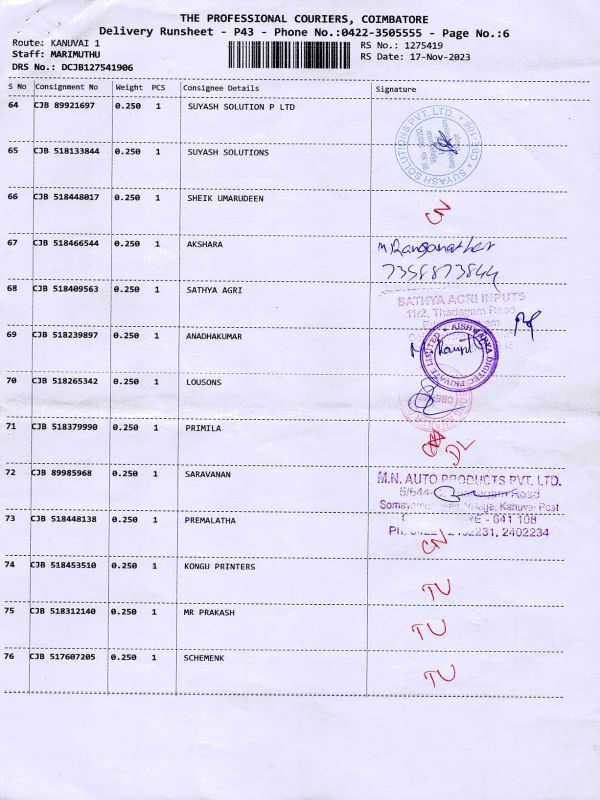 THE PROFESSIONAL COURIERS, COIMBATORE
Delivery Runsheet - P43 - Phone No.:0422-3505555 - Page No.:6
Route: KANUVAI 1
RS No.: 1275419
Staff: MARIMUTHU
RS Date: 17-Nov-2023
DRS No.: DCJB127541906
S No Consignment No Weight PCS Consignee Details Signature
64 CJB 89921697 0.250 1 SUYASH SOLUTION P LTD
SUYASH SOLUTIONS PVT. LTD.
65 CJB 518133844 0.250 1 SUYASH SOLUTIONS
66 CJB 518448017 0.250 1 SHEIK UMARUDEEN
CN
67 CJB 518466544 0.250 1 AKSHARA
M Ranganathan
7358873844
68 CJB 518409563 0.250 1 SATHYA AGRI
SATHYA AGRI INPUTS
11/2, Thadagam Road
69 CJB 518239897 0.250 1 ANADHAKUMAR
AISHWARYA DIGITEC PRIVATE LIMITED
70 CJB 518265342 0.250 1 LOUSONS
CBE
71 CJB 518379990 0.250 1 PRIMILA
DL
72 CJB 89985968 0.250 1 SARAVANAN
M.N. AUTO PRODUCTS PVT. LTD.
5/644 Road
Village, Kanuvai Post
- 641 108
73 CJB 518448138 0.250 1 PREMALATHA
PH: 0422 2402231, 2402234
CN
74 CJB 518453510 0.250 1 KONGU PRINTERS
TU
75 CJB 518312140 0.250 1 MR PRAKASH
TU
76 CJB 517607205 0.250 1 SCHEMENK
TU